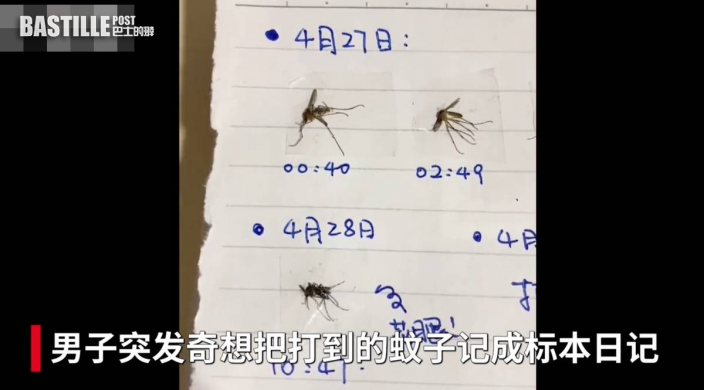 BASTILLE POST
巴士的報
4月27日:
00:40
02:49
4月28日
4月
10:47
男子突发奇想把打到的蚊子记成标本日记